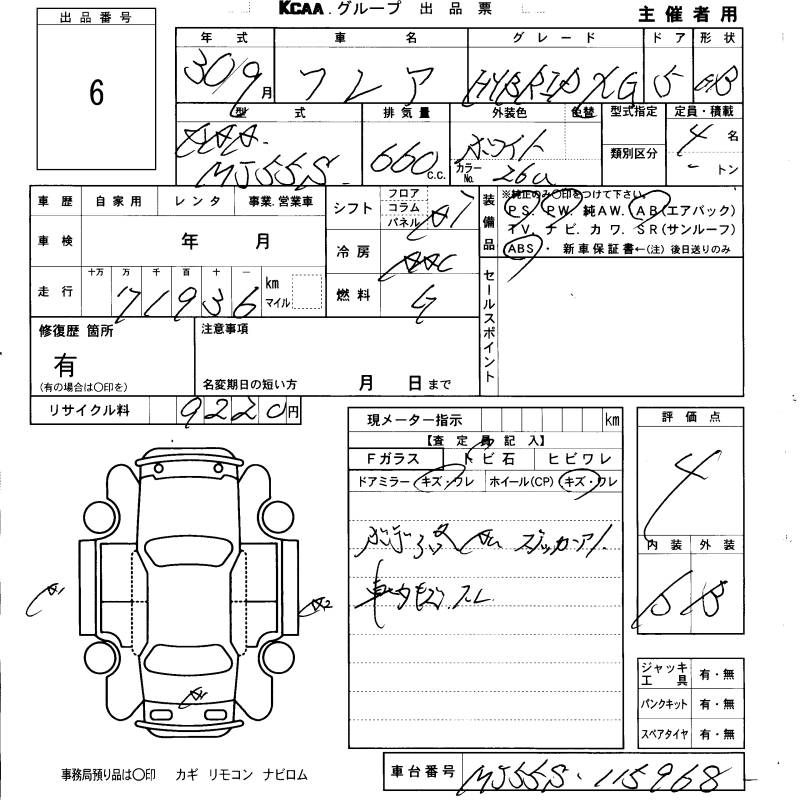 KCAA.グループ 出品票
主催者用
出品番号
6
年式 車名 グレード ドア 形状
30/9月 フレア HYBRID XG 5 HB
型式 排気量 外装色 色替 型式指定 定員・積載
DAA-
MJ55S 660c.c. ホワイト 4名
カラーNo. 26U 類別区分 トン
車歴 自家用 レンタ 事業.営業車
車検 年 月
十万 万 千 百 十 一
走行 71936 km マイル
シフト フロア コラム パネル AT
冷房 AAC
燃料 G
装備品 ※純正のみ〇印をつけて下さい。
PS. PW. 純AW. AB(エアバック)
TV. ナビ. カワ. SR(サンルーフ)
ABS ・ 新車保証書←(注) 後日送りのみ
セールスポイント
修復歴 箇所 注意事項
有
(有の場合は〇印を) 名変期日の短い方 月 日まで
リサイクル料 9220円
現メーター指示 km
【査定員記入】
Fガラス トビ石 ヒビワレ
ドアミラー キズ・ワレ ホイール(CP) キズ・ワレ
車内
評価点
4
内装 外装
B B
A1
A2
A1
ジャッキ工具 有・無
パンクキット 有・無
スペアタイヤ 有・無
事務局預り品は〇印 カギ リモコン ナビロム
車台番号 MJ55S-115968